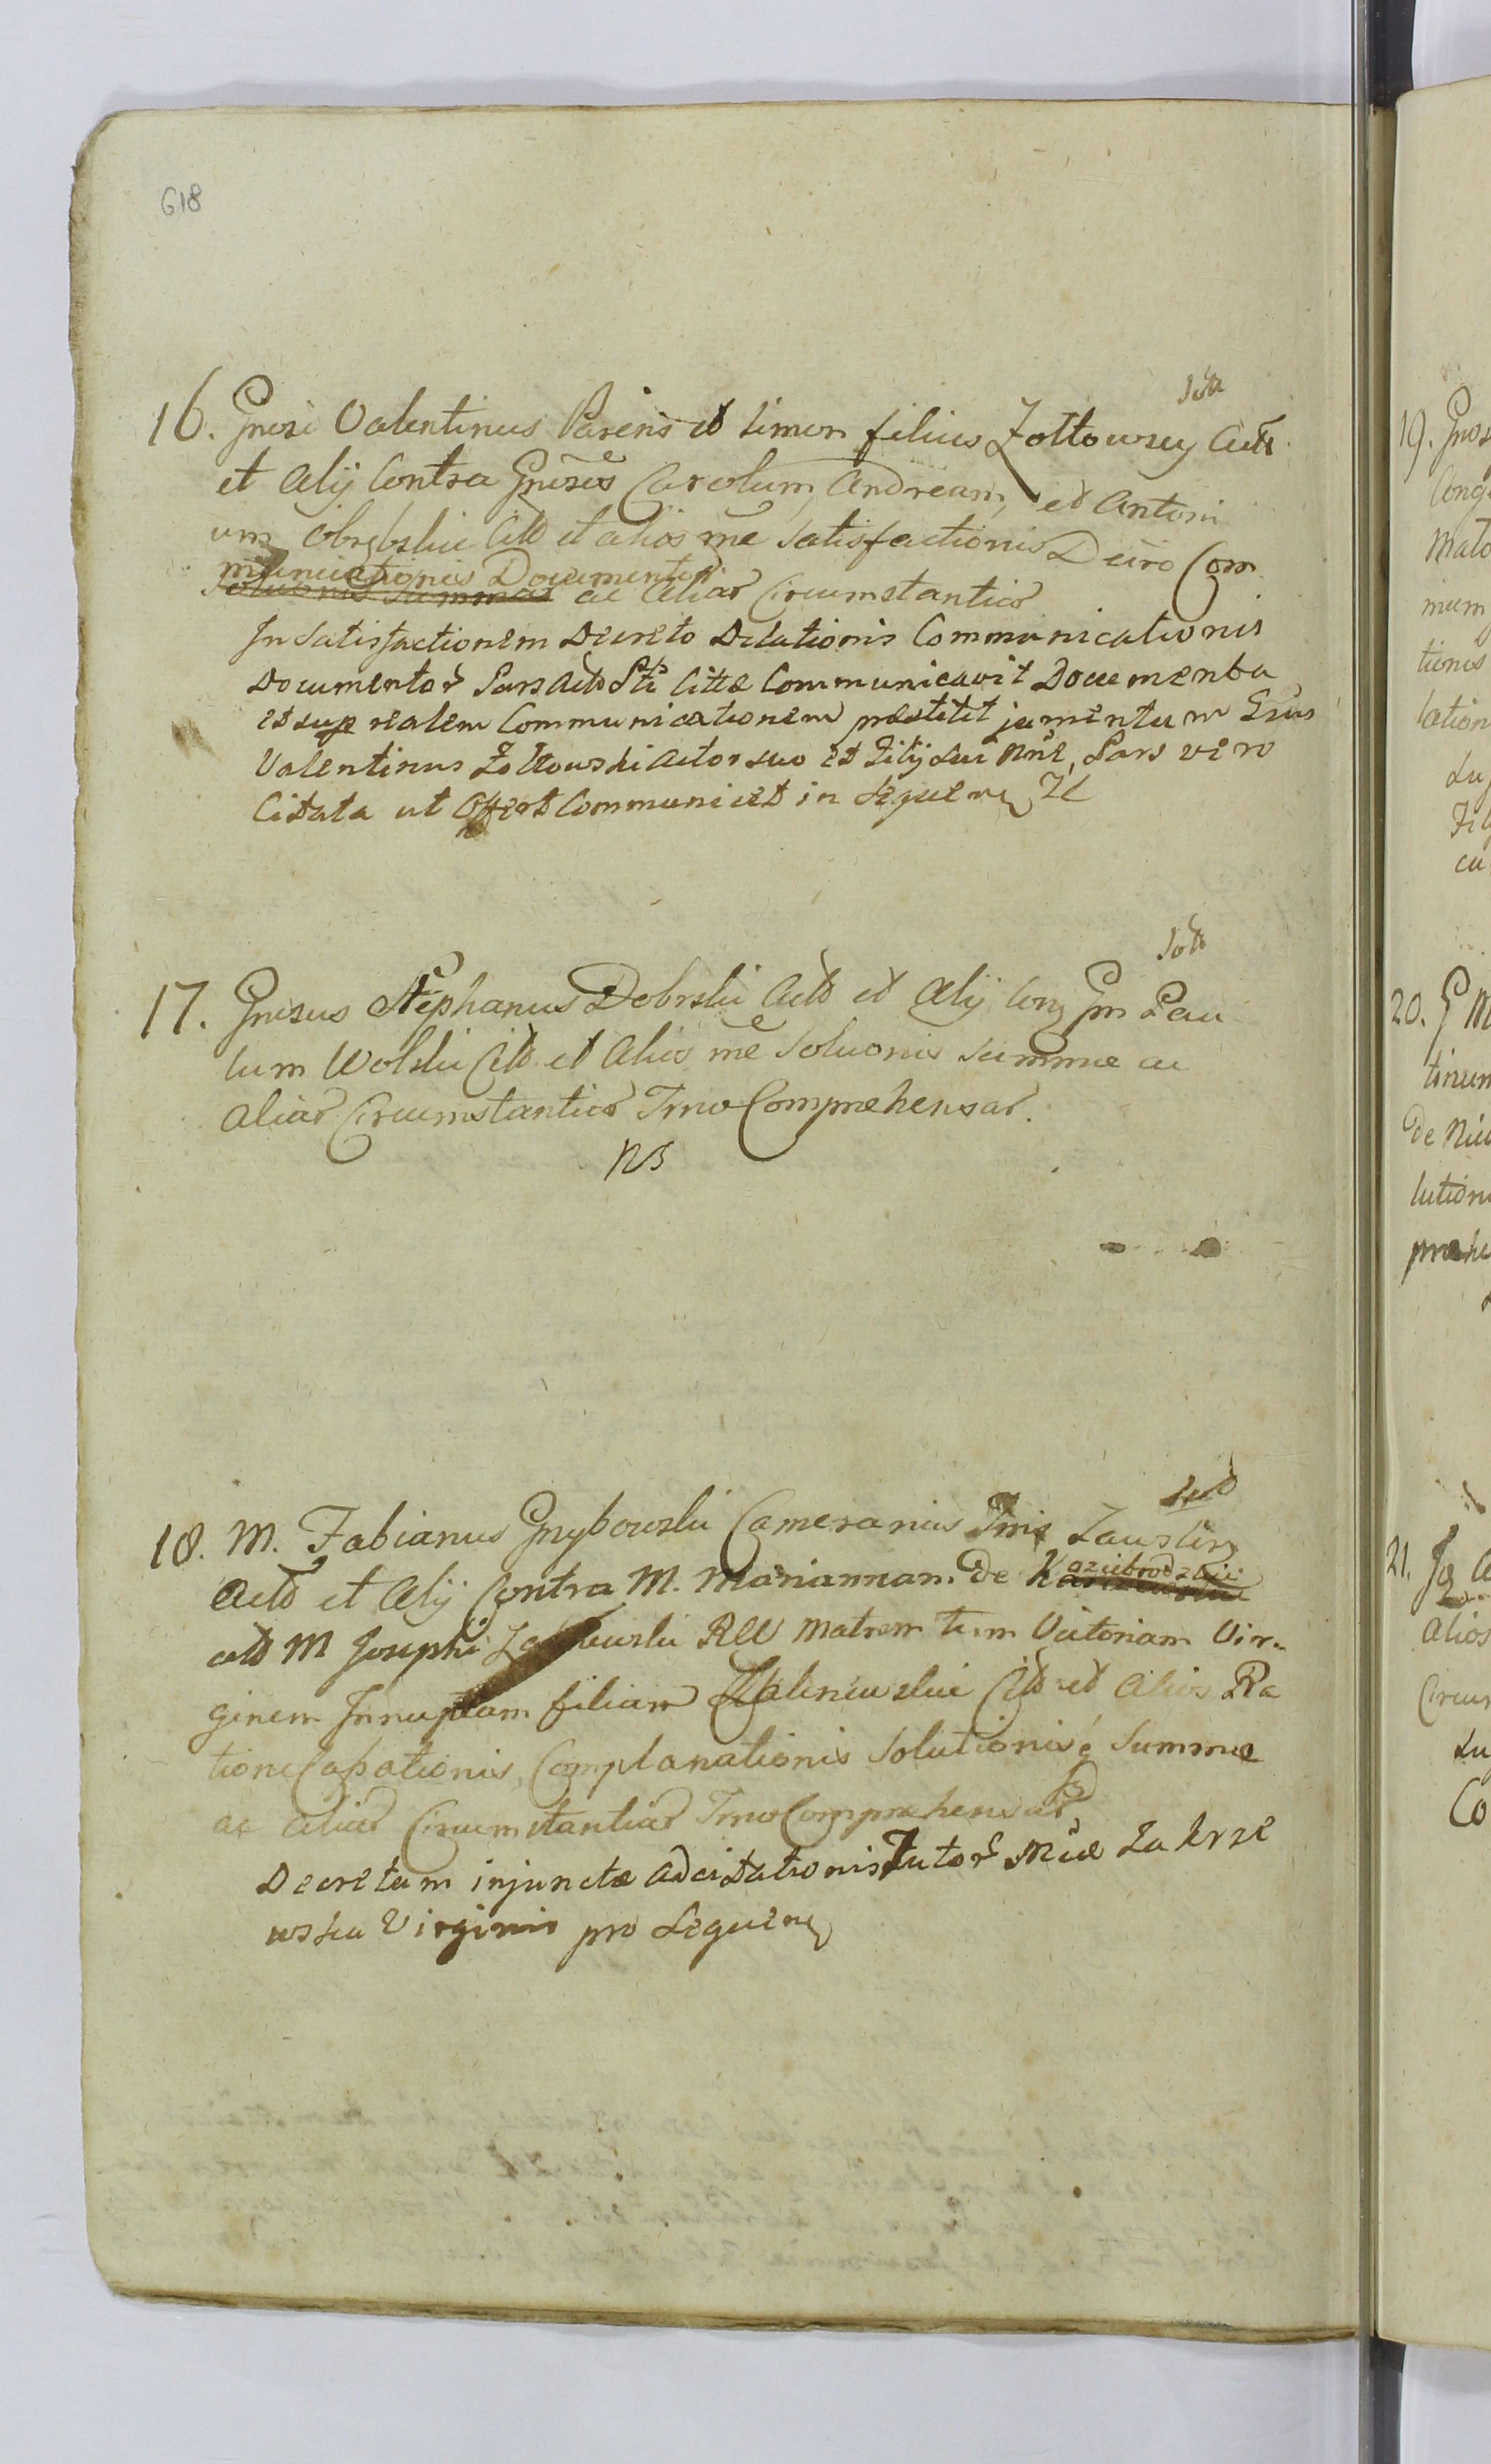 618
16. Gnosi Valentinus Parens et Simon filius Zołtowscy Act
et Alij Contra Gnosos Carolum, Andream, et Antoni
um Obrębskie Citt et alios rne Satisfactionis Decro Com
municationis Documentor
Solutionis Summae ac Aliar Circumstantiar
In Satisfactionem Decreto Dilationis Communicationis
Documentor Pars Act Pti Cittae Communicavit Documenta
et supe realem Communicationem praestitit juramentum Gsus
Valentinus Zołtowski Actor suo et Filij sui nne, Pars vero
Citata ut Offert Communicet in Sequen
17. Gnosus Stephanus Dobrski Act et Alij Con Gm Pau
lum Wolski Citt et Alios rne Soluonis Summae ac
Aliar Circumstantiar Trno Comprehensar.
NS
18. M. Fabianus Grzybowski Camerarius Trris Zaw
Act et Alij Contra M. Mariannam de
aziebrodzkie
M Josephi Relt Matrem tum Victoriam Vir-
ginem Innuptam filiam Citt et Alios Ra
tione Cassationis, Complanationis Solutionis Summae
ac Aliar Circumstantiar Trno Comprehensar
Decretum injunctae Adcitationis Tutor Mcae Zakrze
wska Virginis pro Sequen
19. Gnos
Cong
mato
mum
tionis
lation
cu
20. G M
tinum
de Niu
lution
prehe
21.
Alios
Circum
Co